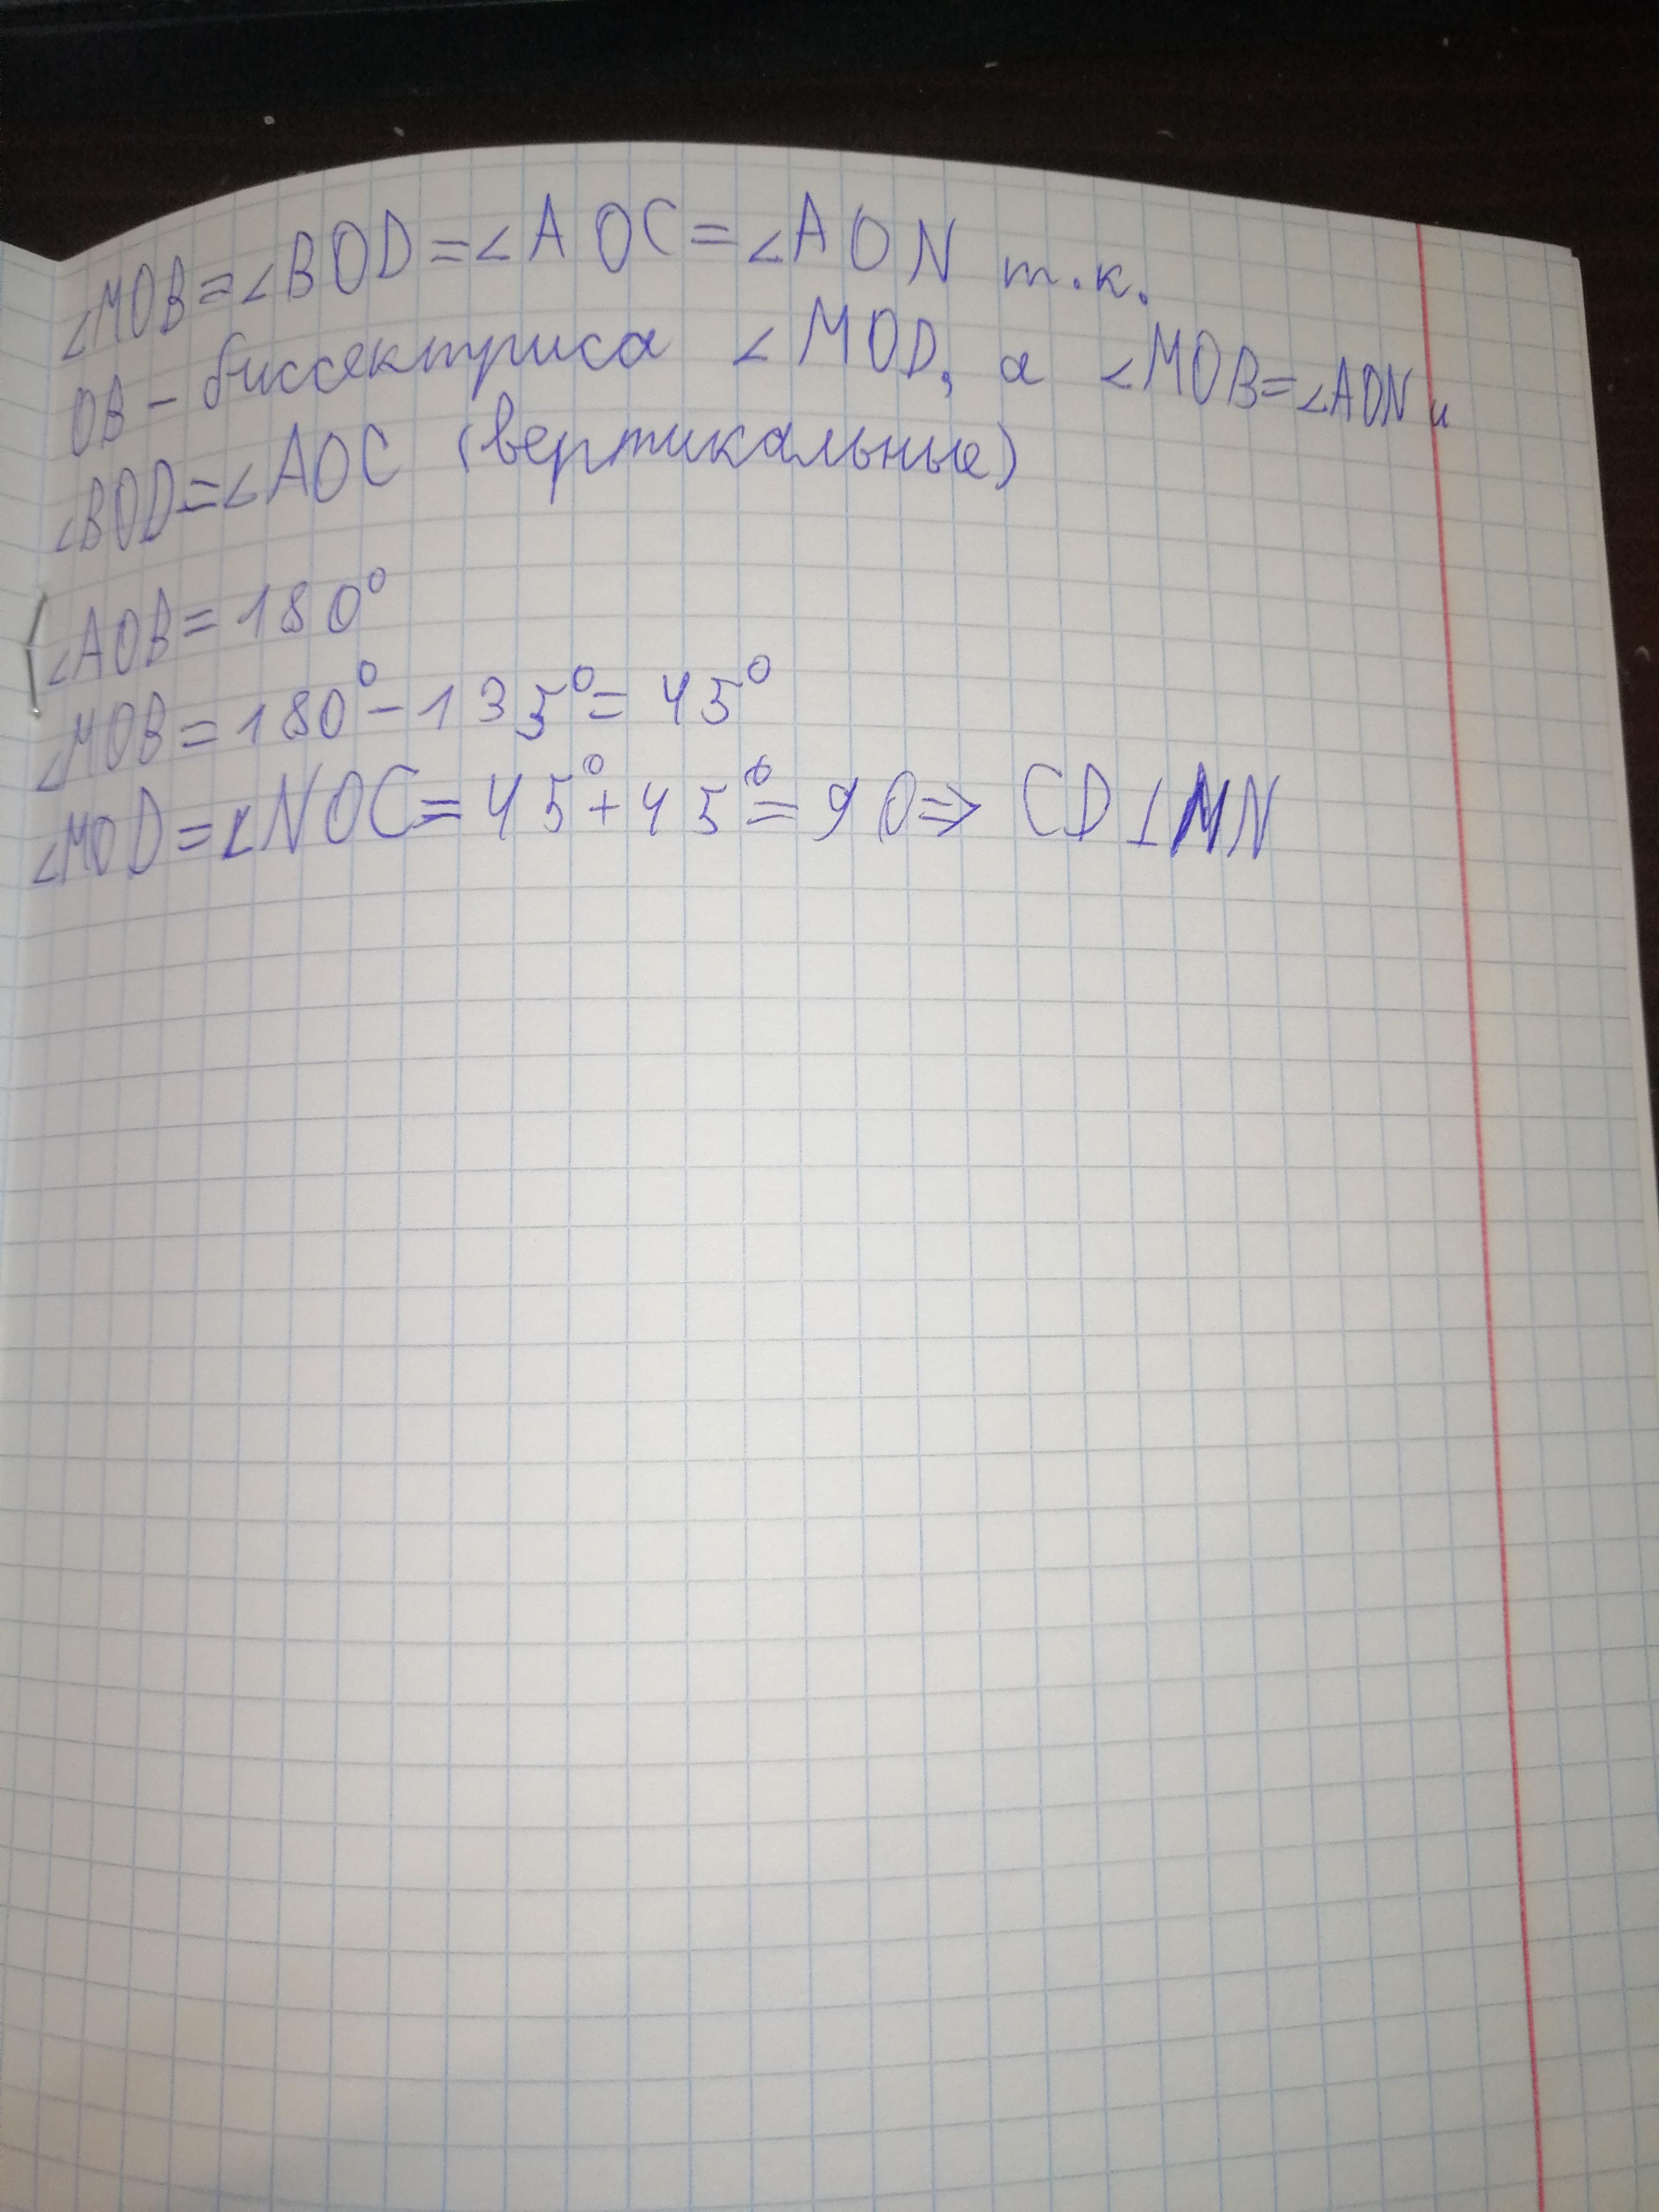 ∠MOB=∠BOD=∠AOC=∠AON т.к.
OB - биссектриса ∠MOD, а ∠MOB=∠AON и
∠BOD=∠AOC (вертикальные)
∠AOB=180°
∠MOB=180°-135°=45°
∠MOD=∠NOC=45°+45°=90⇒ CD⊥MN